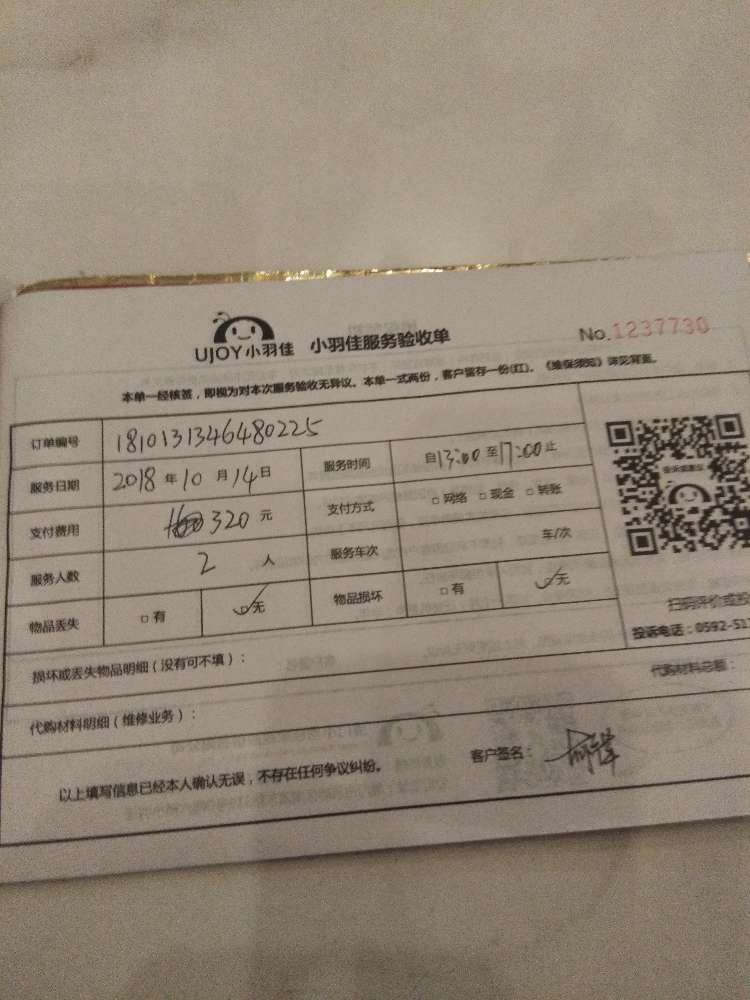 UJOY小羽佳 小羽佳服务验收单 No.1237730
本单一经核签，即视为对本次服务验收无异议。本单一式两份，客户留存一份(红)。《维保须知》详见背面。
订单编号 1810131346480225
服务日期 2018年10月14日 服务时间 自13:00至17:00止
支付费用 320元 支付方式 □网络 □现金 □转账
服务人数 2人 服务车次 车/次
物品丢失 □有 ☑无 物品损坏 □有 ☑无
扫码评价或投
投诉电话：0592-517
损坏或丢失物品明细（没有可不填）：
代购材料明细（维修业务）： 代购材料总额：
以上填写信息已经本人确认无误，不存在任何争议纠纷。 客户签名：